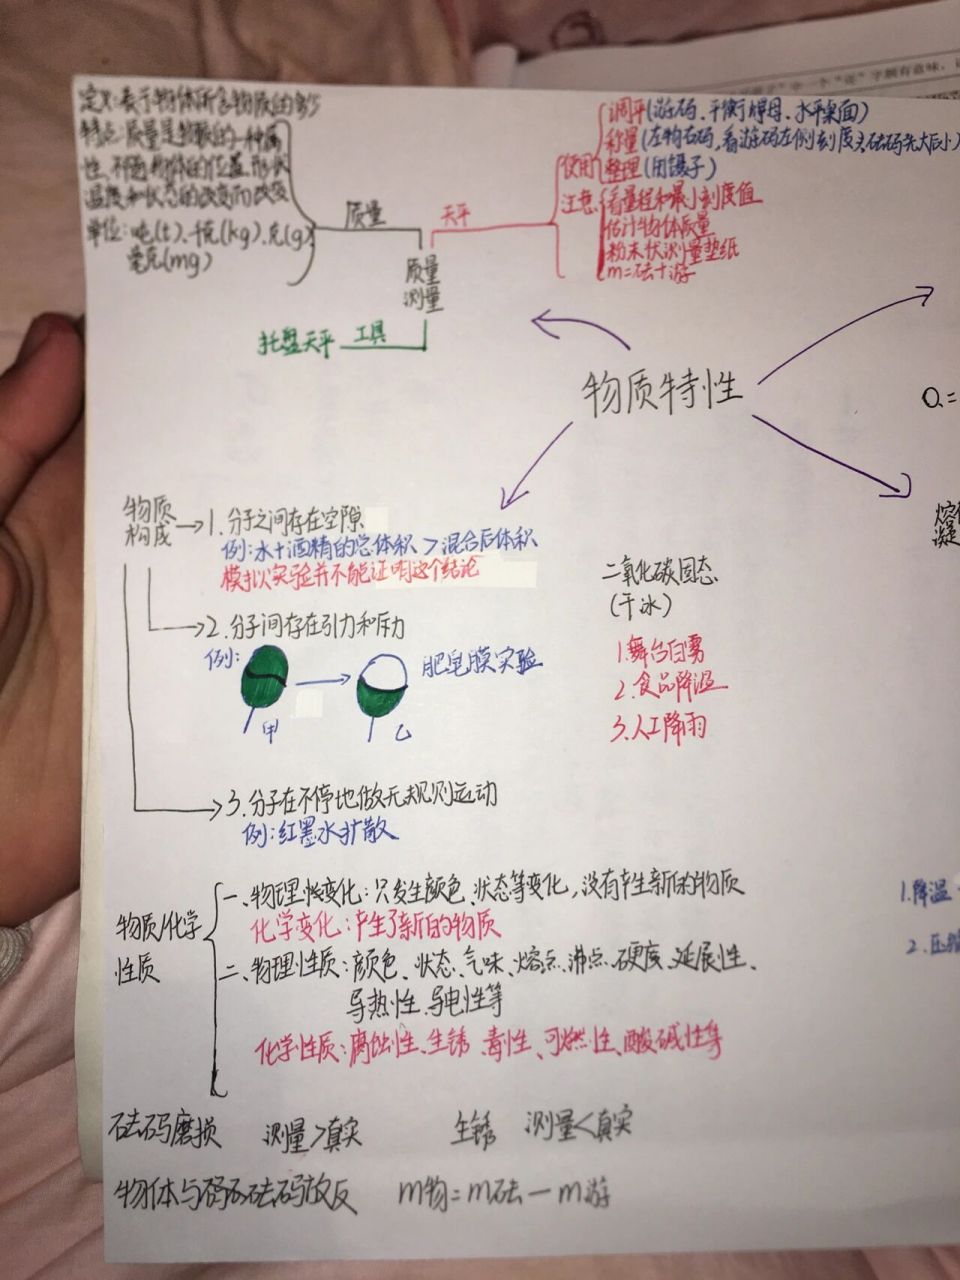 定义:表示物体所含物质的多少
特点:质量是物质的一种属
性,不随物体的位置、形状
温度和状态的改变而改变
单位:吨(t)、千克(kg)、克(g)
毫克(mg)
质量
天平
质量
测量
托盘天平 工具
使用
调平(游码、平衡螺母、水平桌面)
称量(左物右码,看游码左侧刻度,砝码先大后小)
整理(用镊子)
注意:看量程和最小刻度值
估计物体质量
粉末状测量垫纸
m=砝+游
物质特性
Q=
物质
构成
1.分子之间存在空隙
例:水+酒精的总体积>混合后体积
模拟实验并不能证明这个结论
2.分子间存在引力和斥力
例:
甲
乙
肥皂膜实验
3.分子在不停地做无规则运动
例:红墨水扩散
二氧化碳固态
(干冰)
1.舞台白雾
2.食品降温
3.人工降雨
熔
凝
物质/化学
性质
一、物理性变化:只发生颜色、状态等变化,没有产生新的物质
化学变化:产生了新的物质
二、物理性质:颜色、状态、气味、熔点、沸点、硬度、延展性、
导热性、导电性等
化学性质:腐蚀性、生锈、毒性、可燃性、酸碱性等
1.降温
2.压缩
砝码磨损 测量>真实 生锈 测量<真实
物体与砝码放反 m物=m砝-m游